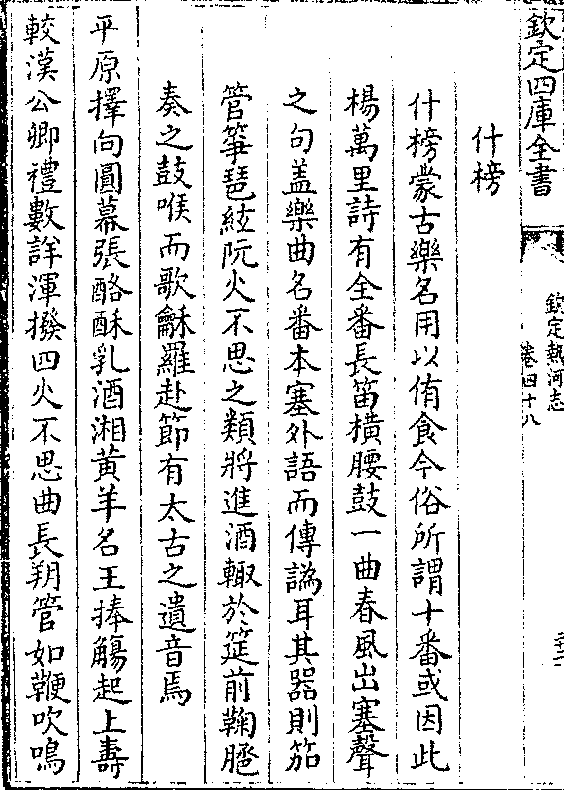 欽定四庫全書
欽定熱河志
卷四十八
什榜
什榜蒙古樂名用以侑食今俗所謂十番或因此
楊萬里詩有全番長笛橫腰鼓一曲春風出塞聲
之句盖樂曲名番本塞外語而傳譌耳其器則笳
管箏琶絃阮火不思之類將進酒輙於筵前鞠䠆
奏之鼓喉而歌龢羅赴節有太古之遺音焉
平原擇向圓幕張酪酥乳酒湘黄羊名王捧觴起上壽
較漢公卿禮數詳渾撥四火不思曲長朔管如鞭吹鳴